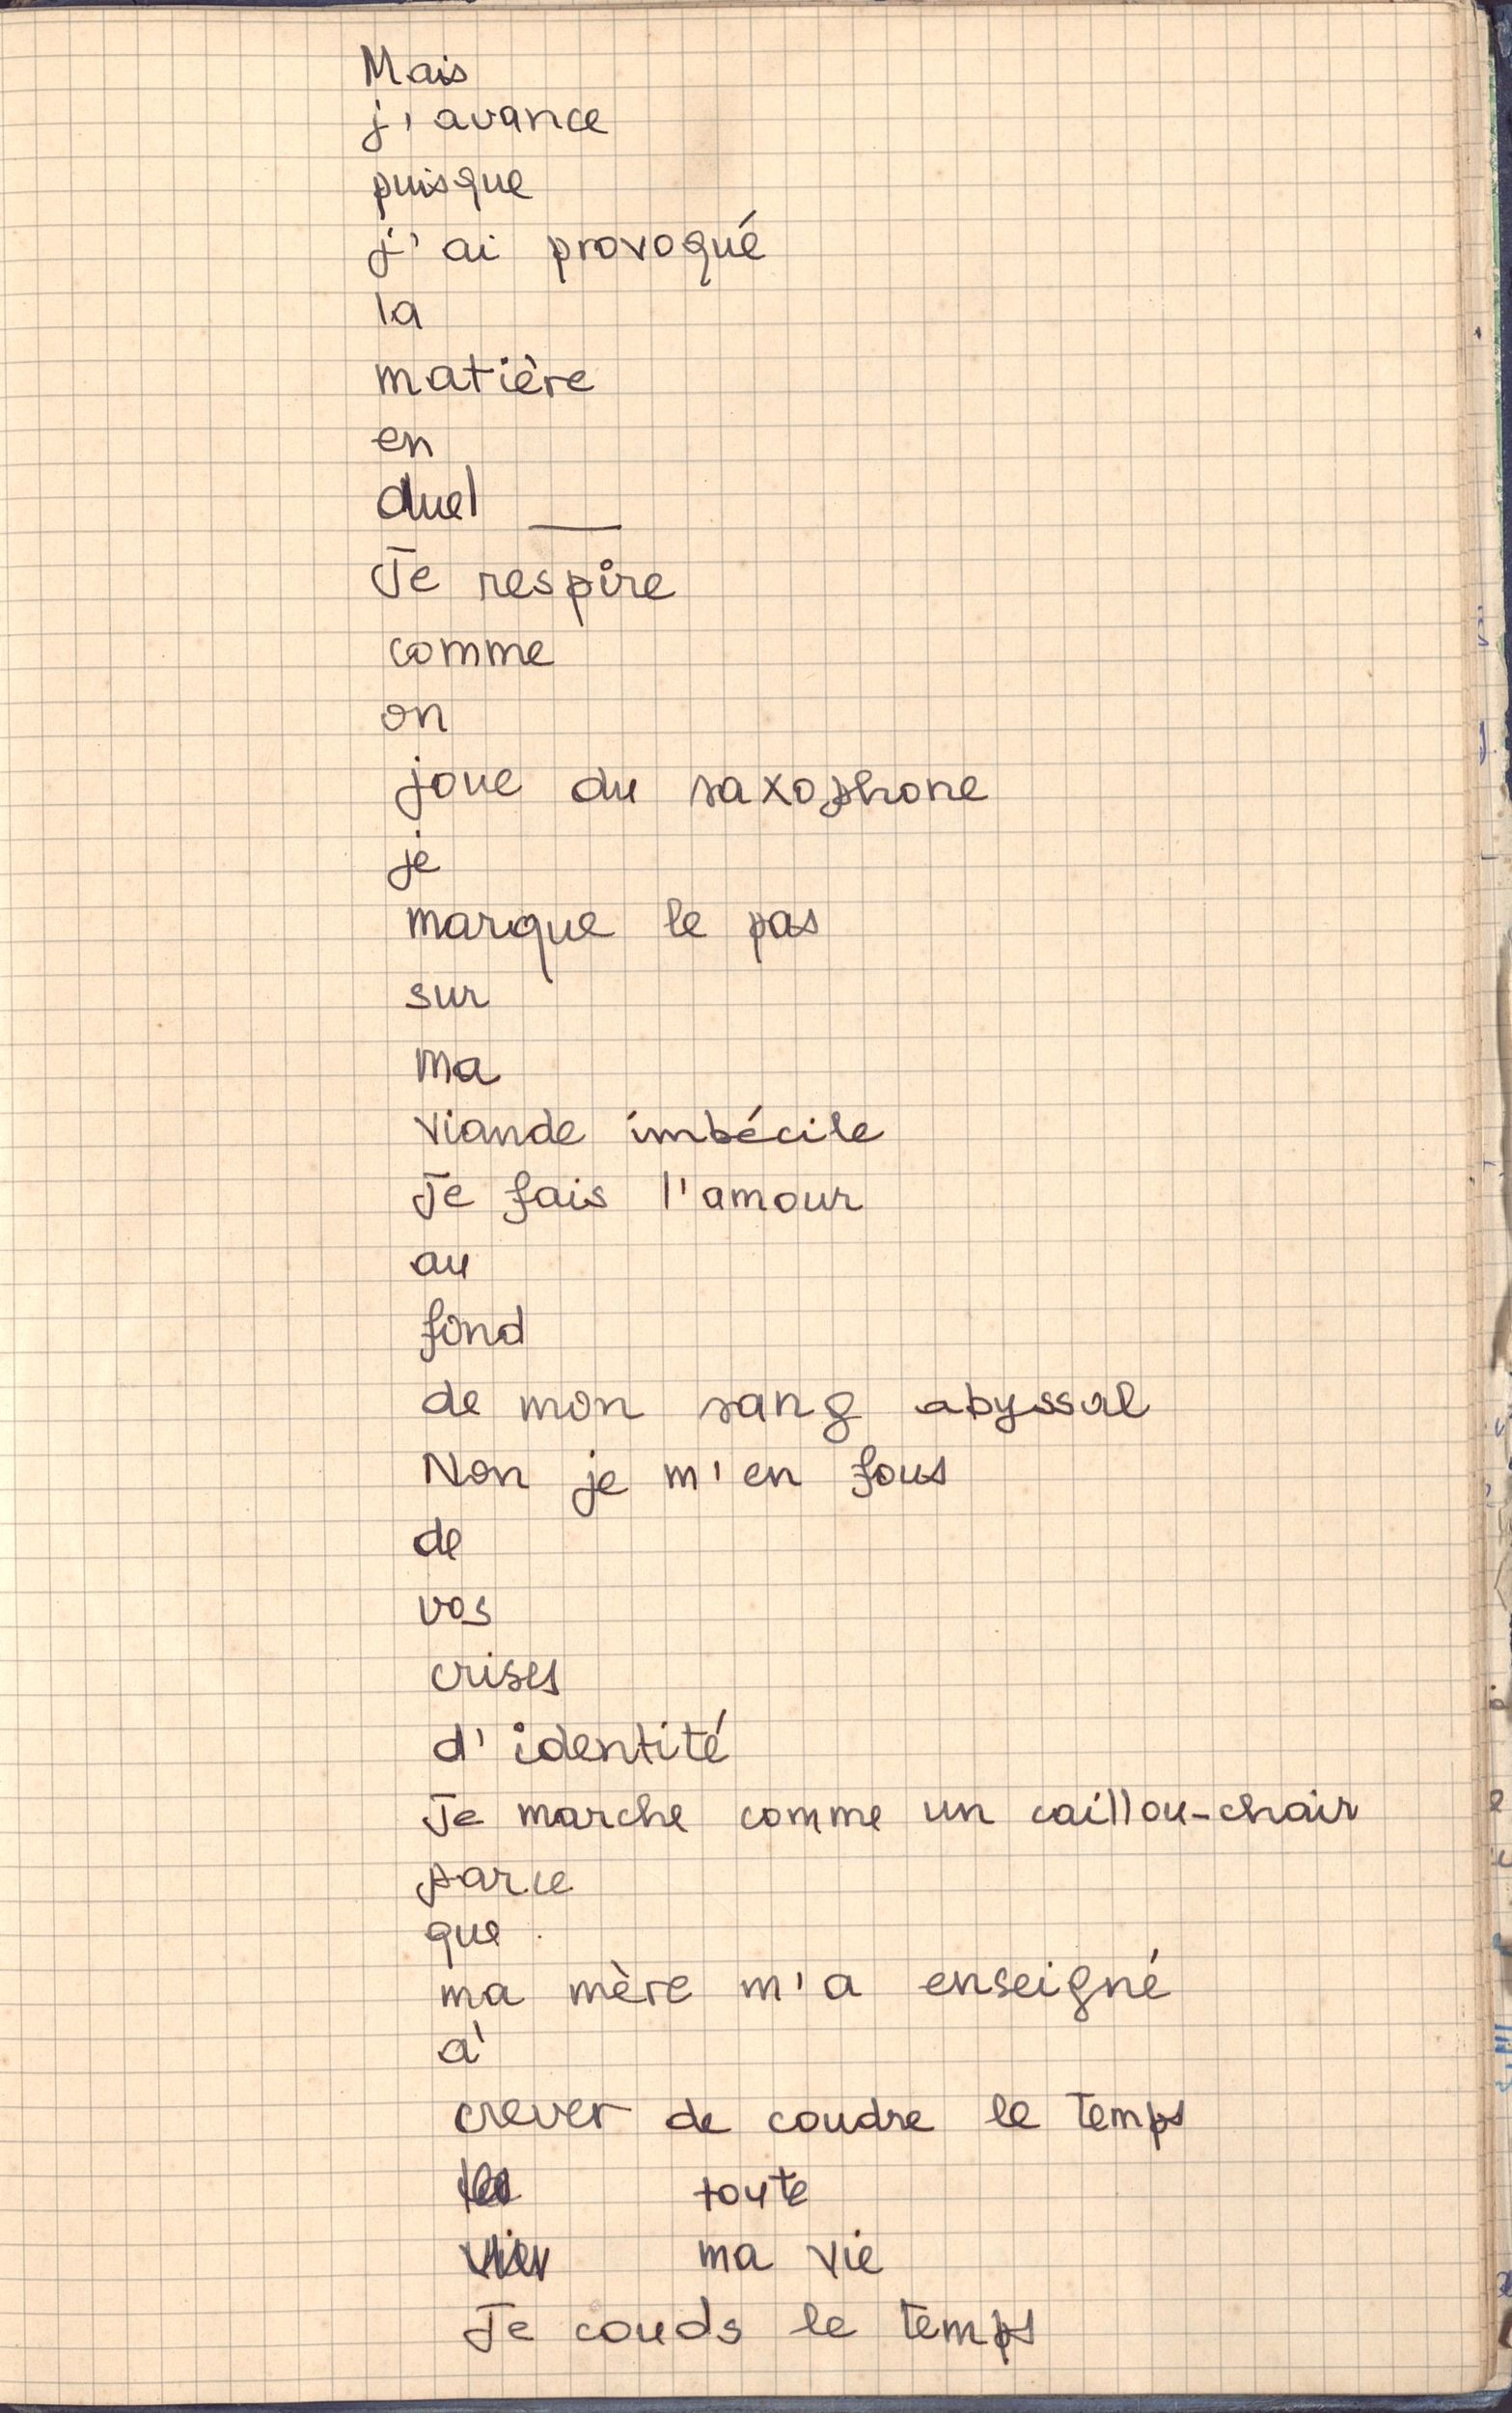 Mais
j'avance
puisque
j'ai provoqué
la
matière
en
duel __
Je respire
comme
on
joue du saxophone
je
marque le pas
sur
ma
viande imbécile
Je fais l'amour
au
fond
de mon sang abyssal
Non je m'en fous
de
vos
crises
d'identité
Je marche comme un caillou-chair
parce
que
ma mère m'a enseigné
à
crever de coudre le temps
toute
ma vie
Je couds le temps